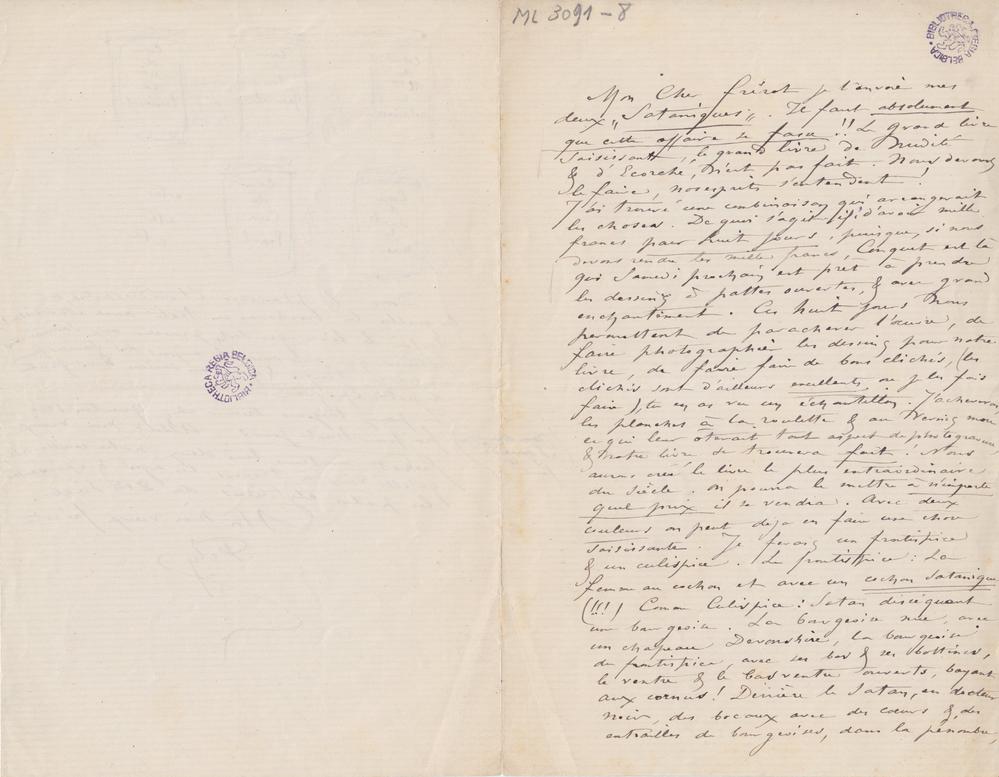 ML 3091-8
BIBLIOTHECA REGIA BELGICA
BIBLIOTHECA REGIA BELGICA
Mon Cher frérot je t'envoie mes
deux „Sataniques„. Il faut absolument
que cette affaire se fasse !! Le grand livre
saisissant, le grand livre de Nudité
& d'Ecorché, n'est pas fait. Nous devons
le faire, nos esprits s'entendent !
J'ai trouvé une combinaison qui arrangerait
les choses. De quoi s'agit il: d'avoir mille
francs pour huit jours, puisque, si nous
devons rendre les mille francs, Conquet est là
qui Samedi prochain est prêt à prendre
les dessins à pattes ouvertes, & avec grand
enchantement. Ces huit jours nous
permettent de parachever l'œuvre, de
faire photographier les dessins pour notre
livre, de faire faire de bons clichés, (les
clichés sont d'ailleurs excellents, où je les fais
faire), tu en as vu un échantillon. J'acheverai
les planches à la roulette & au Vernis mou
ce qui leur ôterait tout aspect de photogravure,
& notre livre se trouvera fait ! Nous
aurons créé le livre le plus extraordinaire
du siècle. On pourra le mettre à n'importe
quel prix il se vendra. Avec deux
couleurs on peut déja en faire une chose
saisissante. Je ferai un frontispice
& un culispice. Le frontispice: La
femme au cochon et avec un cochon satanique
(!!!) Comme Culispice: Satan disséquant
une bourgeoise. La bourgeoise nue, avec
un chapeau Devonshire, la bourgeoise
du frontispice, avec ses bas & ses bottines,
le ventre & le bas ventre ouverts, bayant
aux cornus ! Derrière le Satan, en docteur
noir, des bocaux avec des cœurs & des
entrailles de bourgeoises, dans la pénombre,